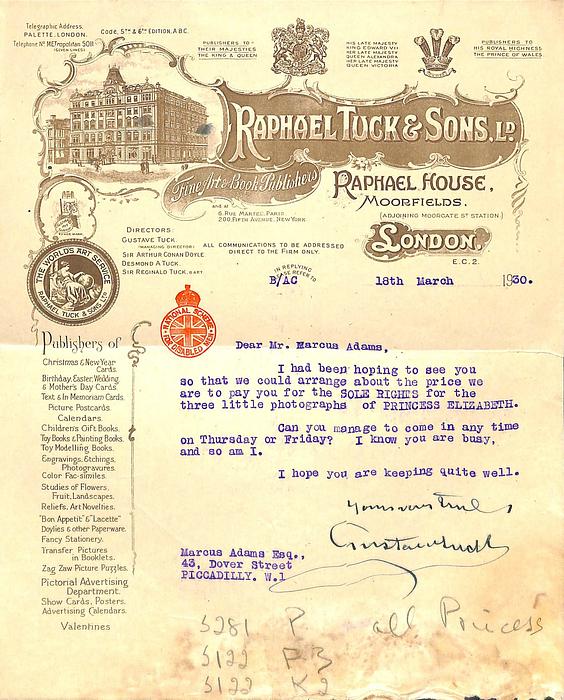 Telegraphic Address,
PALETTE, LONDON.
Code, 5TH & 6TH EDITION, A B C.
Telephone No METropolitan 5011
(SEVEN LINES)
PUBLISHERS TO
THEIR MAJESTIES
THE KING & QUEEN
HIS LATE MAJESTY
KING EDWARD VII
HER LATE MAJESTY
QUEEN ALEXANDRA
HER LATE MAJESTY
QUEEN VICTORIA
PUBLISHERS TO
HIS ROYAL HIGHNESS
THE PRINCE OF WALES
RAPHAEL TUCK & SONS, LD
Fine Art & Book Publishers
RAPHAEL HOUSE,
MOORFIELDS,
(ADJOINING MOORGATE ST STATION)
LONDON,
E.C. 2.
and at
6, RUE MARTEL, PARIS
200, FIFTH AVENUE, NEW YORK
DIRECTORS
GUSTAVE TUCK
(MANAGING DIRECTOR)
SIR ARTHUR CONAN DOYLE
DESMOND A. TUCK
SIR REGINALD TUCK, BART
ALL COMMUNICATIONS TO BE ADDRESSED
DIRECT TO THE FIRM ONLY.
THE WORLD'S ART SERVICE
RAPHAEL TUCK & SONS LTD
IN REPLYING
PLEASE REFER TO
B/AC 18th March 1930.
NATIONAL SCHEME
FOR DISABLED MEN
Dear Mr. Marcus Adams,
I had been hoping to see you
so that we could arrange about the price we
are to pay you for the SOLE RIGHTS for the
three little photographs of PRINCESS ELIZABETH.
Can you manage to come in any time
on Thursday or Friday? I know you are busy,
and so am I.
I hope you are keeping quite well.
Yours very truly,
Gustave Tuck
Marcus Adams Esq.,
43, Dover Street
PICCADILLY. W.1
Publishers of
Christmas & New Year
Cards.
Birthday, Easter, Wedding,
& Mother's Day Cards.
Text & In Memoriam Cards.
Picture Postcards.
Calendars.
Children's Gift Books.
Toy Books & Painting Books.
Toy Modelling Books.
Engravings, Etchings,
Photogravures.
Color Fac-similes.
Studies of Flowers,
Fruit, Landscapes.
Reliefs, Art Novelties.
"Bon Appetit" & "Lacette"
Doylies & other Paperware.
Fancy Stationery.
Transfer Pictures
in Booklets.
Zag Zaw Picture Puzzles.
Pictorial Advertising
Department.
Show Cards, Posters.
Advertising Calendars.
Valentines
5281 P all Princess
5122 P3
5122 K2